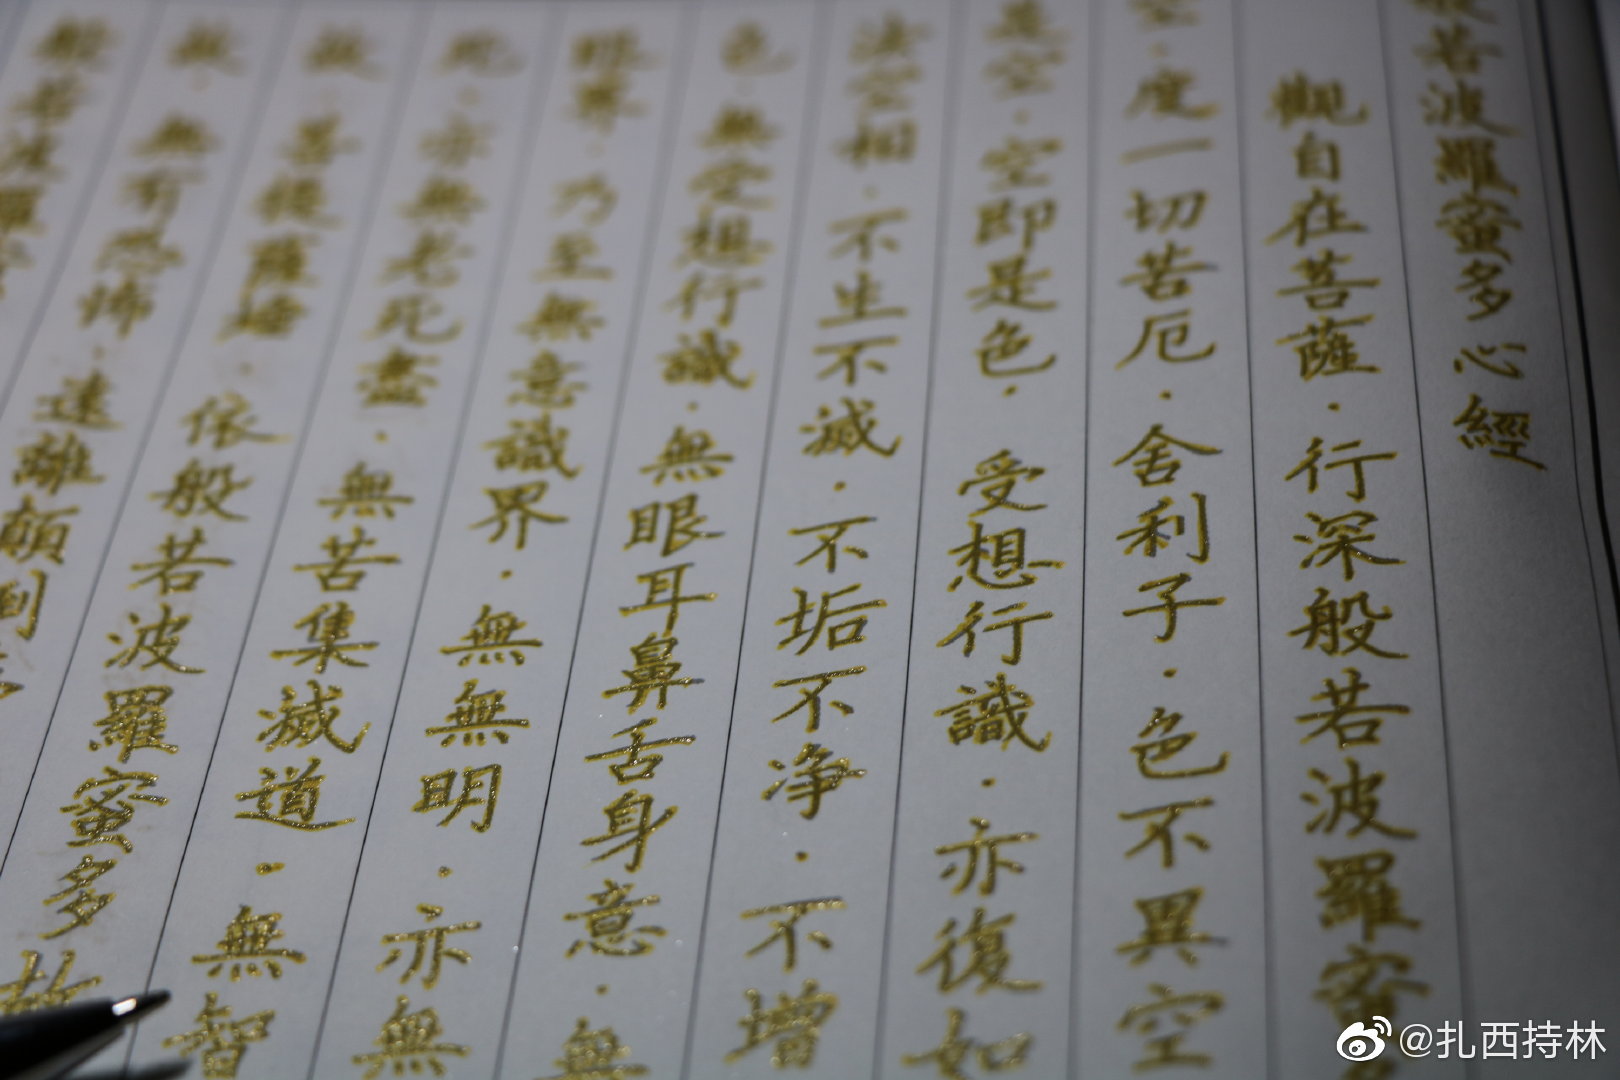 般若波羅蜜多心經
觀自在菩薩·行深般若波羅蜜
空·度一切苦厄·舍利子·色不異空
是空·空即是色·受想行識·亦復如
法空相·不生不滅·不垢不净·不增
色·無受想行識·無眼耳鼻舌身意·無
眼界·乃至無意識界·無無明·亦無
死·亦無老死盡·無苦集滅道·無智
故·菩提薩埵·依般若波羅蜜多故
故·無有恐怖·遠離顛倒
般若波羅
@扎西持林